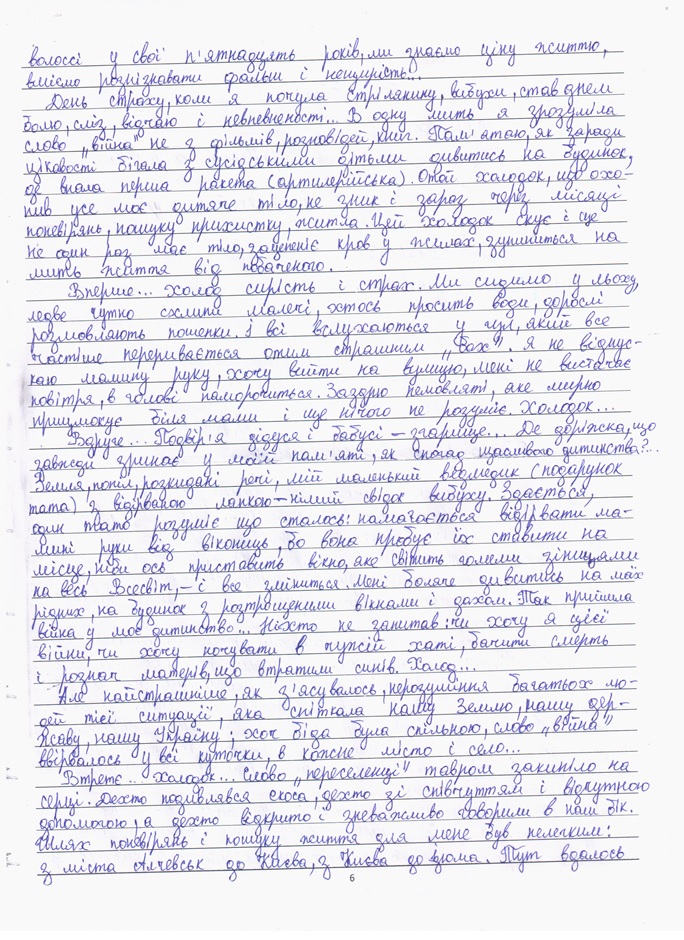 волоссі у свої п'ятнадцять років, ми знаємо ціну життю,
вміємо розпізнавати фальш і нещирість...
День страху, коли я почула стрілянину, вибухи, став днем
болю, сліз, відчаю і невпевненості... В одну мить я зрозуміла
слово „війна" не з фільмів, розповідей, книг. Пам'ятаю, як заради
цікавості бігала з сусідськими дітьми дивитись на будинок,
де впала перша ракета (артилерійська). Отой холодок, що охо-
пив усе моє дитяче тіло, не зник і зараз через місяці
поневірянь, пошуку прихистку, житла. Цей холодок скує і ще
не один раз моє тіло, зацепеніє кров у жилах, зупиниться на
мить життя від побаченого.
Вперше... холод сирість і страх. Ми сидимо у льоху,
ледве чутно схлипи малечі, хтось просить води, дорослі
розмовляють пошепки. І всі вслухаються у гул, який все
частіше переривається отим страшним „бах". Я не відпус-
каю мамину руку, хочу вийти на вулицю, мені не вистачає
повітря, в голові паморочиться. Заздрю немовляті, яке мирно
прицмокує біля мами і ще нічого не розуміє. Холодок...
Вдруге... Подвір'я дідуся і бабусі – згарище... Де доріжка, що
завжди зринає у моїй пам'яті, як спогад щасливого дитинства?...
Земля, попіл, розкидані речі, мій маленький ведмедик (подарунок
тата) з відірваною лапкою – німий свідок вибуху. Здається,
один тато розуміє що сталось: намагається відірвати ма-
мині руки від віконниць, бо вона пробує їх ставити на
місце, ніби ось приставить вікно, яке світить големи зіницями
на весь Всесвіт, – і все зміниться. Мені боляче дивитись на моїх
рідних, на будинок з розтрощеними вікнами і дахом. Так прийшла
війна у моє дитинство... Ніхто не запитав: чи хочу я цієї
війни, чи хочу ночувати в чужій хаті, бачити смерть
і розпач матерів, що втратили синів. Холод...
Але найстрашніше, як з'ясувалось, нерозуміння багатьох лю-
дей тієї ситуації, яка спіткала нашу Землю, нашу дер-
жаву, нашу Україну; хоч біда була спільною, слово „війна"
ввірвалось у всі куточки, в кожне місто і село...
Втретє... Холодок... Слово „переселенці" тавром закипіло на
серці. Дехто подивлявся скоса, дехто зі співчуттям і відчутною
допомогою, а дехто відкрито і зневажливо говорили в наш бік.
Шлях поневірянь і пошуку життя для мене був нелегким:
з міста Алчевськ до Києва, з Києва до . Тут вдалось
6